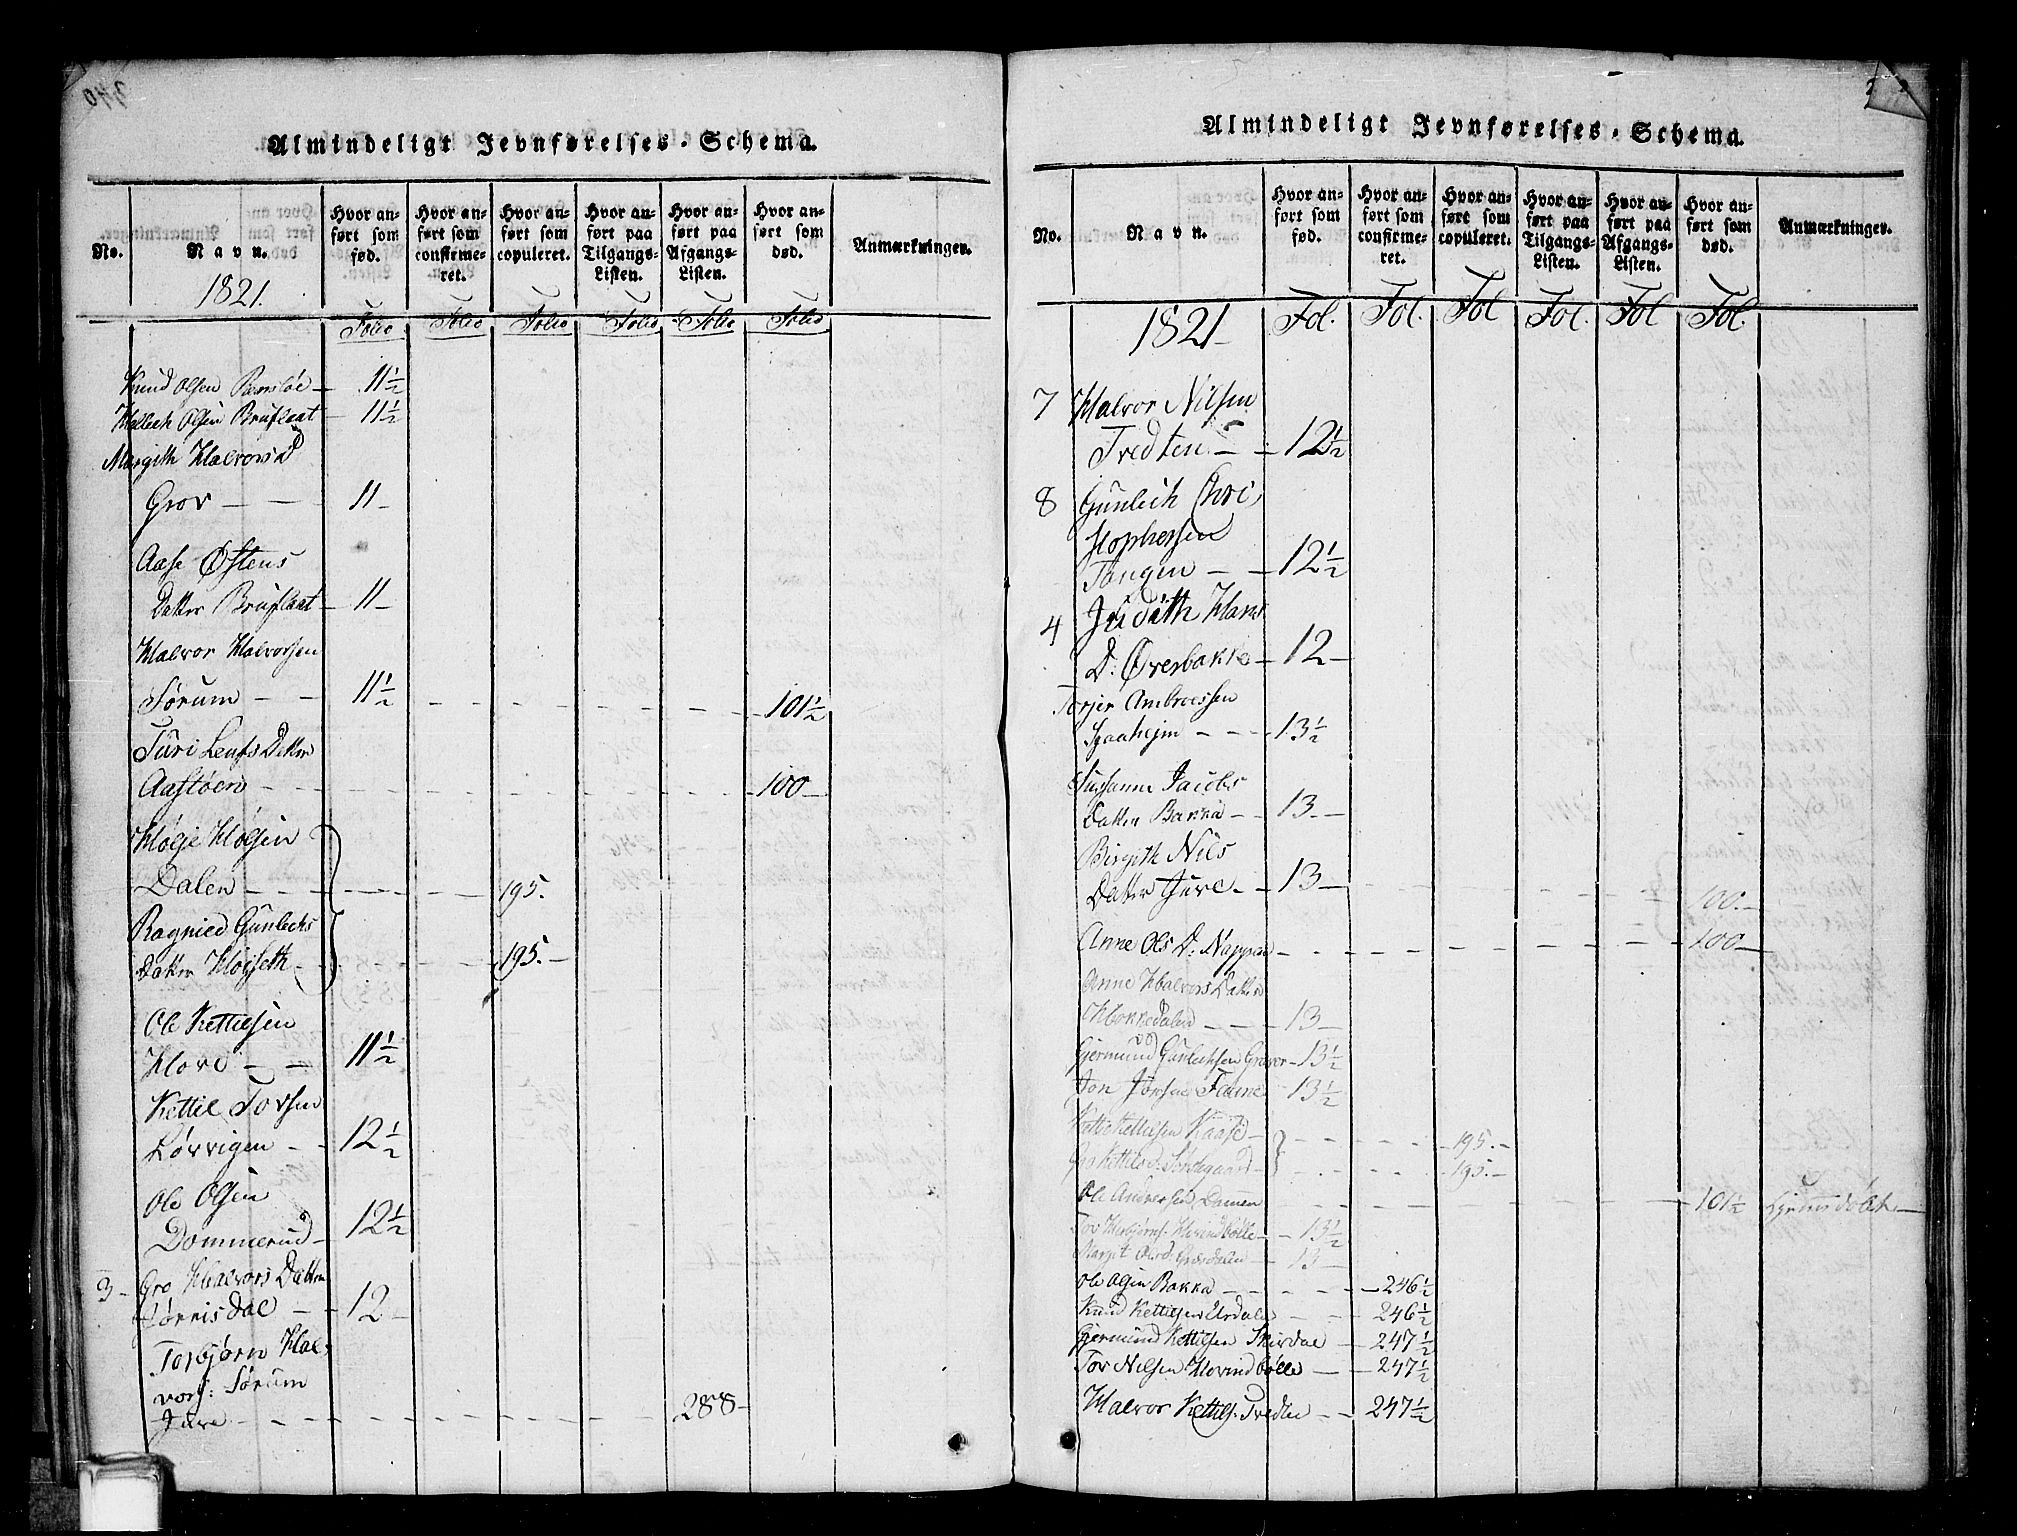 340
Almindeligt Jevnførelses-Schema.
No.
Navn.
Hvor anført som fød.
Hvor anført som confirmeret.
Hvor anført som copuleret.
Hvor anført paa Tilgangs-Listen.
Hvor anført paa Afgangs-Listen.
Hvor anført som død.
Anmærkninger.
1821.
Folio Folio Folio Folio Folio Folio
Knud Olsen - 11½
Olsen Bruflaat - 11½
Margith Halvors D
Grov - - 11 -
Aase Østens
Datter Bruflaat - 11 -
Halvor Halvorsen
Sørum - - 11½ - - - - - 101½
Turi Leufs Datter
Aastøen - - - - - - 100 -
Helje Helgsen
Dalen - - - - - 195.
Ragnied Gunlechs
Datter Høgseth - - - - 195. -
Ole Kettilsen
Hove - - 11½
Kettil Torsen
Løvvigen - - 12½
Ole Olsen
Dommerud - 12½
3 - Gro Halvors Datter
Tønnisdal - - 12 -
Torbjørn Hal-
vors: Sørum
Jure - - - - - - 288 -
Almindeligt Jevnførelses-Schema.
No.
Navn.
Hvor anført som fød.
Hvor anført som confirmeret.
Hvor anført som copuleret.
Hvor anført paa Tilgangs-Listen.
Hvor anført paa Afgangs-Listen.
Hvor anført som død.
Anmærkninger.
1821 - Fol. Fol. Fol Fol. Fol Fol.
7 Halvor Nilsen
Tredten - - 12½
8 Gunlech Chri
stophersen
Tangen - - 12½
4 Judith Hans
D: Øverbakke - 12 -
Torjer Ambroessen
- - - 13½
Sussanne Jacobs
Datter Bakka - - 13. -
Birgith Nils
Datter Jure - - 13 - - - - - 100. -
Anne Ols D: - - - - - 100 -
Anne Halvors Datter
- - - 13 -
Gjermund Gunlechsen Graver - 13½
Jon Jonsen - 13½
Kettilsen Kaase - - - - - 195. -
Gro Kettils D: Søndegaard - - - - 195. -
Ole Andersen - - - - - - 101½
Tov Herbjørns: Hovindbølle - - 13½
Margit Gaasdalen - 13 -
Ole Olsen Bakka - - - - - 246½
Knud Kettilsen Urdalen - - - 246½
Gjermund Kettilsen Skirdal - - 247½
Tov Nilsen Hovindbølle - - 247½
Halvor Kettils: Tredten - - 247½